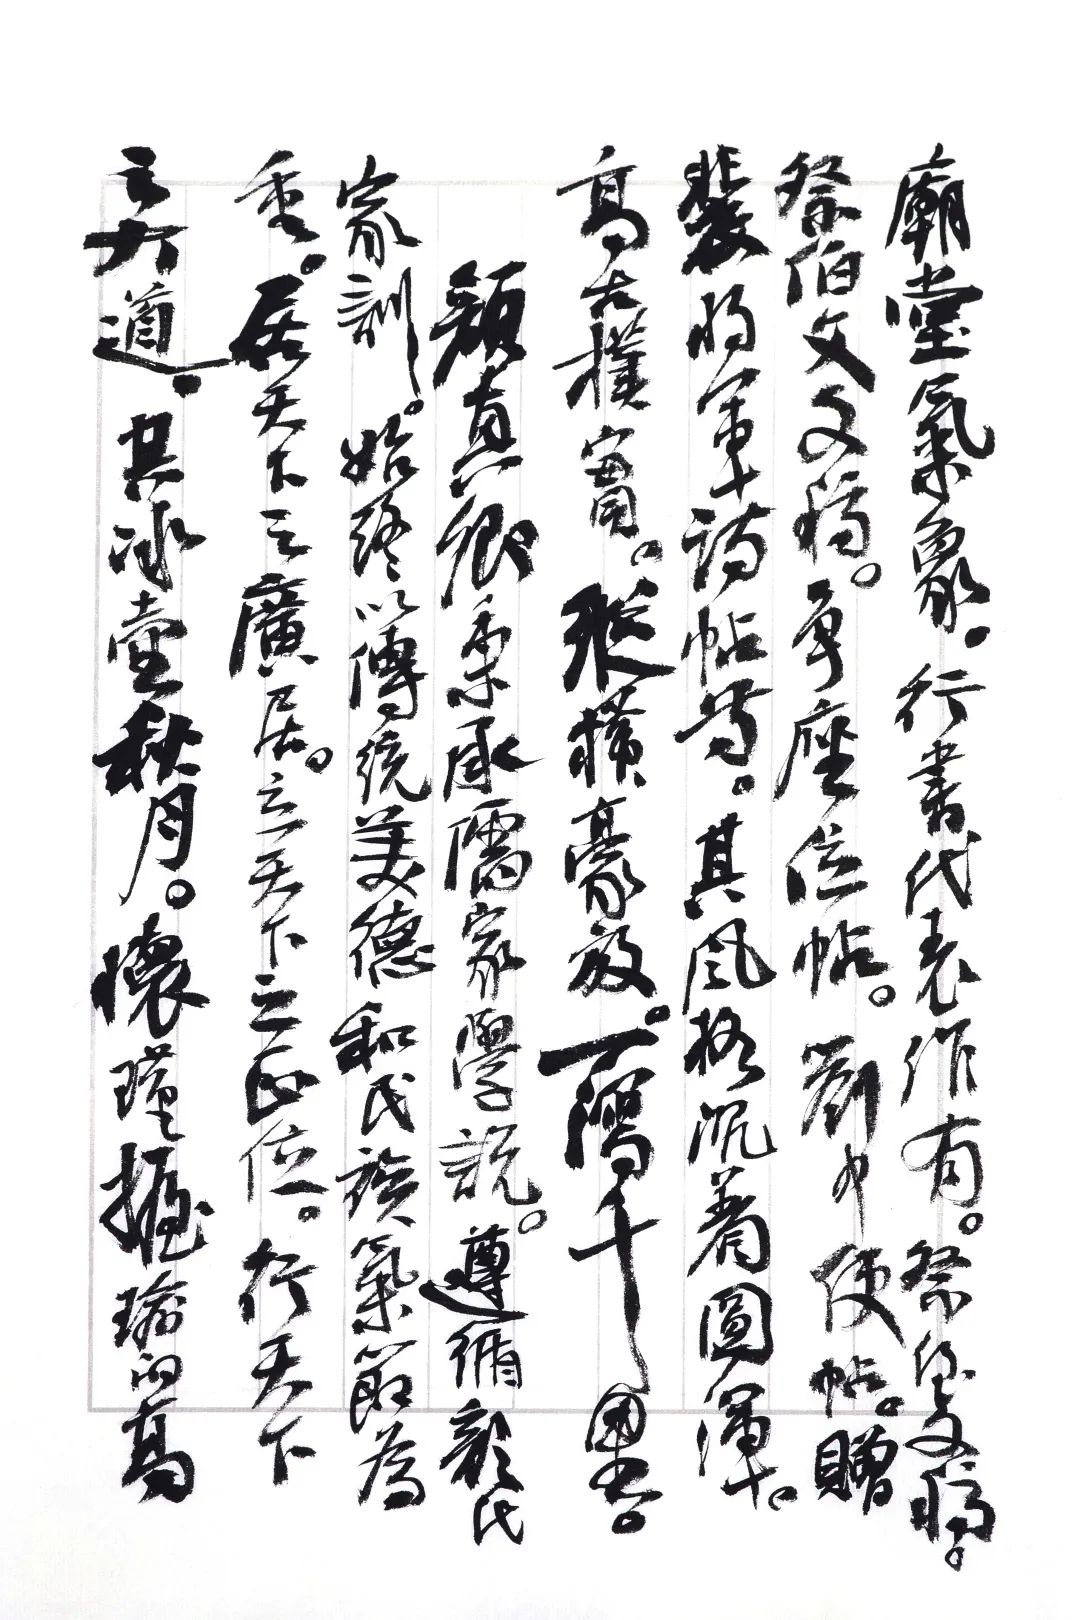 廟堂氣象。行書代表作有。祭侄文稿。
祭伯文文稿。爭座位帖。劉中使帖。贈
裴將軍詩帖等。其風格沉着圓渾。
高古樸實。縱橫豪放。一瀉千里。
顏真卿秉承儒家學說。遵循顏氏
家訓。始終以傳統美德和民族氣節為
重。居天下之廣居。立天下之正位。行天下
之大道。其冰壺秋月。懷瑾握瑜的高